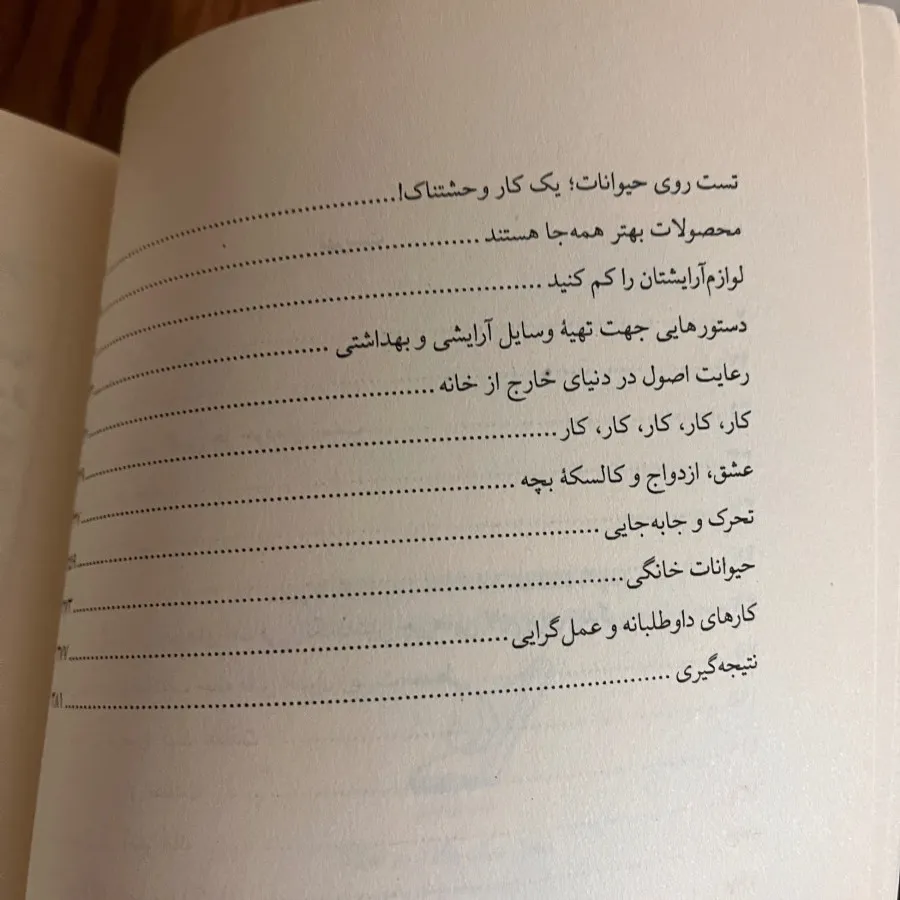 تست روی حیوانات؛ یک کار وحشتناک!
محصولات بهتر همه‌جا هستند
لوازم‌آرایشتان را کم کنید
دستورهایی جهت تهیهٔ وسایل آرایشی و بهداشتی
رعایت اصول در دنیای خارج از خانه
کار، کار، کار، کار، کار
عشق، ازدواج و کالسکهٔ بچه
تحرک و جابه‌جایی
حیوانات خانگی
کارهای داوطلبانه و عمل‌گرایی
نتیجه‌گیری